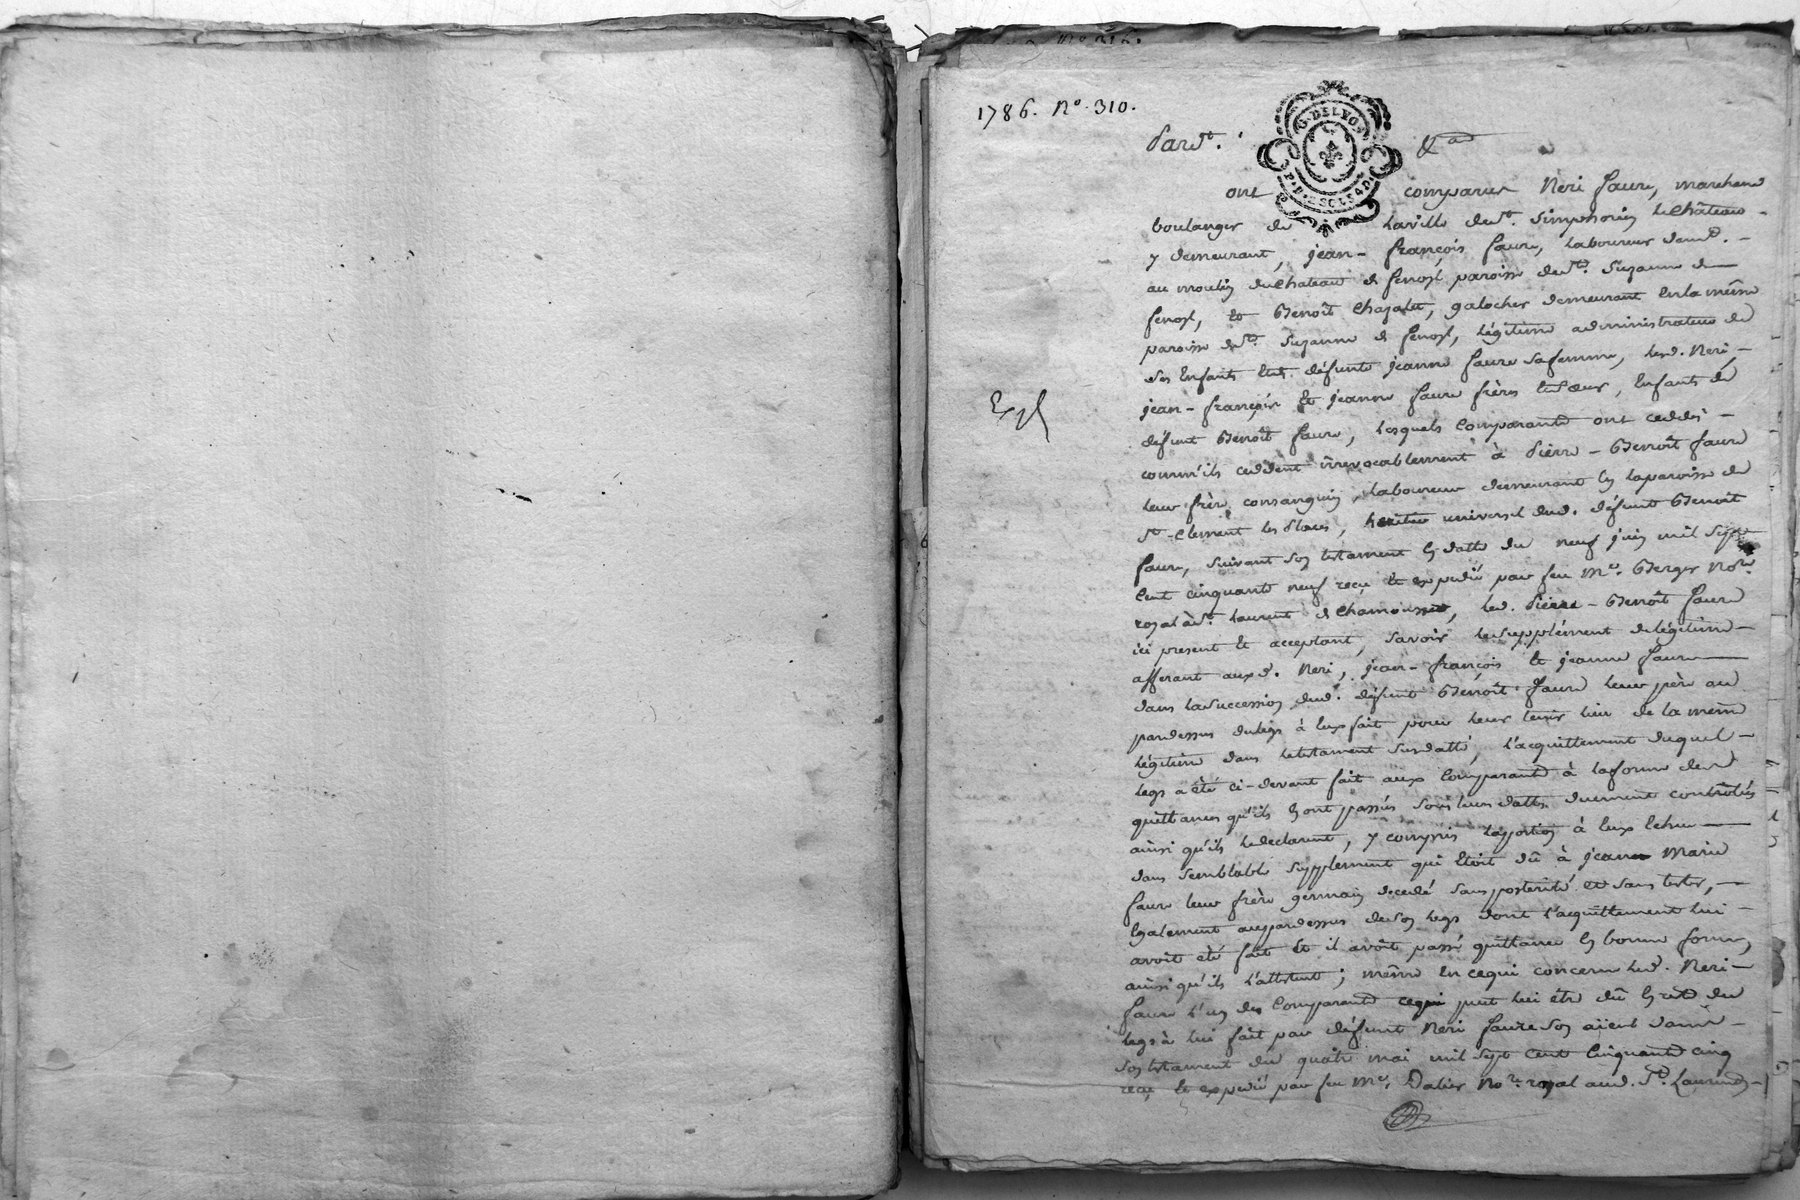 1786. N.º 310.
Pard.t &a
G. DE LYON
ont comparus Neri faure, marchand
boulanger de laville de St. Simphorien le Château -
y demeurant, jean - françois faure, laboureur dem.t -
au moulin du Chateau de fenoyl paroisse de Ste. Suzanne de
fenoyl, et Benoît Chazalet, galocher demeurant en la même
paroisse de Ste. Suzanne de fenoyl, légitime administrateur de
ses Enfants et de défunte jeanne faure sa femme, lesd. Neri,
jean - françois et jeanne faure frères et sœur, Enfants de
défunt Benoît faure, lesquels Comparants ont ceddés -
comm'ils ceddent irrevocablement à Pierre - Benoît faure
leur frère consanguin, laboureur demeurant en la paroisse de
St. Clement les Places, heritier universel dud. défunt Benoît
faure, suivant son testament en datte du neuf juin mil sept
Cent cinquante neuf reçu et expedié par feu Me. Berger No.re
royal à St. Laurent de Chamousset, led. Pierre - Benoît faure
ici present et acceptant, savoir le supplément de légitime -
afferant auxd. Neri, jean - françois et jeanne faure
dans la succession dud. défunt Benoît faure leur père au
pardessus du legs à Eux fait pour leur tenir lieu de la même
légitime dans le testament susdatté, l'acquittement duquel -
legs a été ci-devant fait aux Comparants à la forme des
quittances qu'ils en ont passées sous leurs dattes duement contrôlées
ainsi qu'ils le declarent, y compris la portion à Eux Echue
dans semblable supplement qui Etoit dû à jean Marie
faure leur frère germain decedé sans posterité et sans tester, -
Egalement au pardessus de son legs dont l'acquittement lui -
avoit été fait Et il avoit passé quittance en bonne forme,
ainsi qu'ils l'attestent ; même en ce qui concerne led. Neri -
faure l'un des Comparants ce qui peut lui être dû en reste du
legs à lui fait par défunt Neri faure son aïeul dans -
son testament du quatre mai mil sept cent Cinquante cinq
reçu et expedié par feu Me. Dalier No.re royal aud. St. Laurent, -